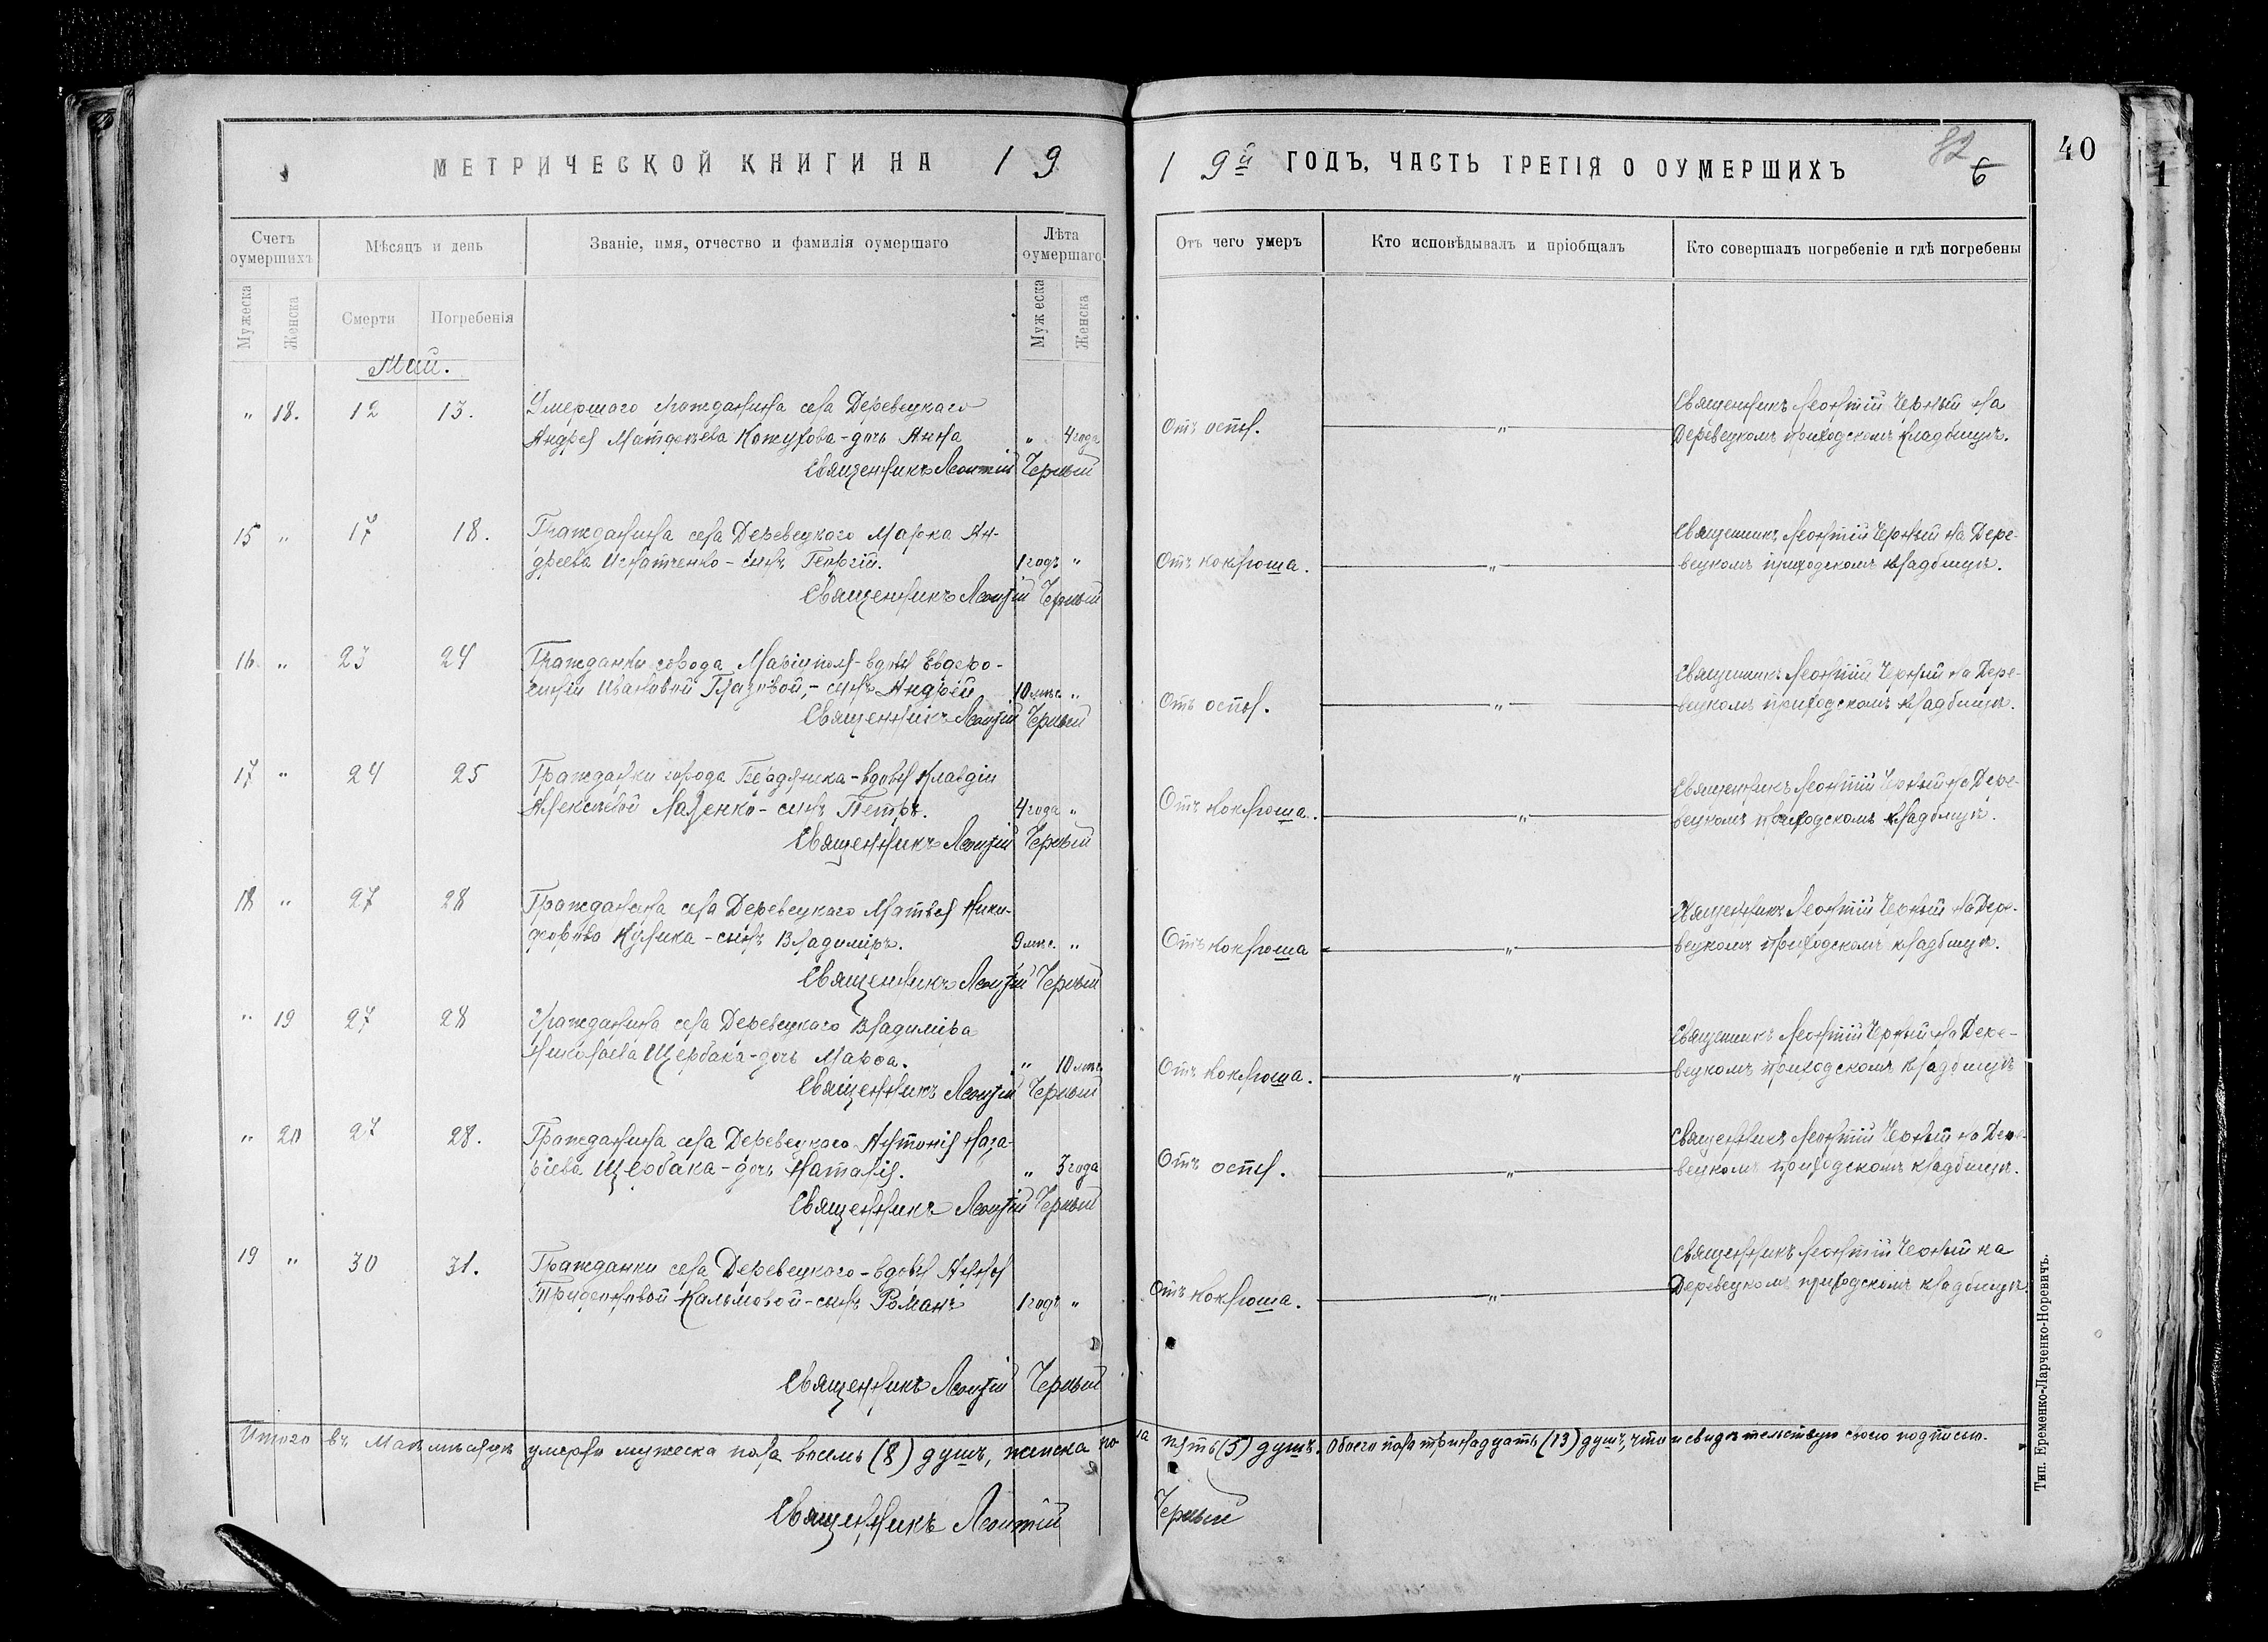 МЕТРИЧЕСКОЙ КНИГИ НА 1 9
1 9й ГОДЪ, ЧАСТЬ ТРЕТІЯ О ОУМЕРШИХЪ
82
6
40
1
Счетъ оумершихъ
Мѣсяцъ и день
Званіе, имя, отчество и фамилія оумершаго
Лѣта оумершаго
Отъ чего умеръ
Кто исповѣдывалъ и пріобщалъ
Кто совершалъ погребеніе и гдѣ погребены
Мужеска
Женска
Смерти
Погребенія
Мужеска
Женска
Май.
" 18. 12 13. Умершого гражданина села Деревецкаго
Андрея Матѳеева Кожухова - дочь Анна " 4 года
Священникъ Леонтій Черный
Отъ оспы. "
Священникъ Леонтій Черный на
Деревецкомъ приходскомъ кладбищѣ.
15 " 17 18. Гражданина села Деревецкого Марка Ан-
дреева Игнатченко - сынъ Георгій. 1 годъ "
Священникъ Леонтій Черный
Отъ коклюша. "
Священникъ Леонтій Черный на Дере-
вецкомъ приходскомъ кладбищѣ.
16 " 23 24 Гражданки города Маріуполя - вдовы Евдо-
Ивановой - сынъ Андрей 10 мѣс. "
Священникъ Леонтій Черный
Отъ оспы. "
Священникъ Леонтій Черный на Дере-
вецкомъ приходскомъ кладбищѣ.
17 " 24 25 Гражданки города Бердянска - вдовы Клавдіи
Алексѣевой Лазенко - сынъ Петръ. 4 года "
Священникъ Леонтій Черный
Отъ коклюша. "
Священникъ Леонтій Черный на Дере-
вецкомъ приходскомъ кладбищѣ.
18 " 27 28 Гражданина села Деревецкаго Матвея Ники-
форова Кулика - сынъ Владиміръ. 9 мѣс. "
Священникъ Леонтій Черный
Отъ коклюша "
Священникъ Леонтій Черный на Дере-
вецкомъ приходскомъ кладбищѣ.
" 19 27 28 Гражданина села Деревецкаго Владиміра
Николаева Щербака - дочь Марѳа. " 10 мѣс.
Священникъ Леонтій Черный
Отъ коклюша. "
Священникъ Леонтій Черный на Дере-
вецкомъ приходскомъ кладбищѣ
" 20 27 28. Гражданина села Деревецкого Антонія Наза-
ріева Щербака - дочь Наталія. " 3 года
Священникъ Леонтій Черный
Отъ оспы. "
Священникъ Леонтій Черный на Дере-
вецкомъ приходскомъ кладбищѣ.
19 " 30 31. Гражданки села Деревецкого - вдовы Анны
Кальмовой - сынъ Романъ 1 годъ "
Священникъ Леонтій Черный
Отъ коклюша. "
Священникъ Леонтій Черный на
Деревецкомъ приходскомъ кладбищѣ.
Итого въ Маѣ мѣсяцѣ умерло мужеска пола восемь (8) душъ, женска по-
ла пять (5) душъ. Обоего пола тринадцать (13) душъ, что и свидѣтельствую своею подписью.
Священникъ Леонтій Черный
Тип. Еременко-Ларченко-Норевичъ.